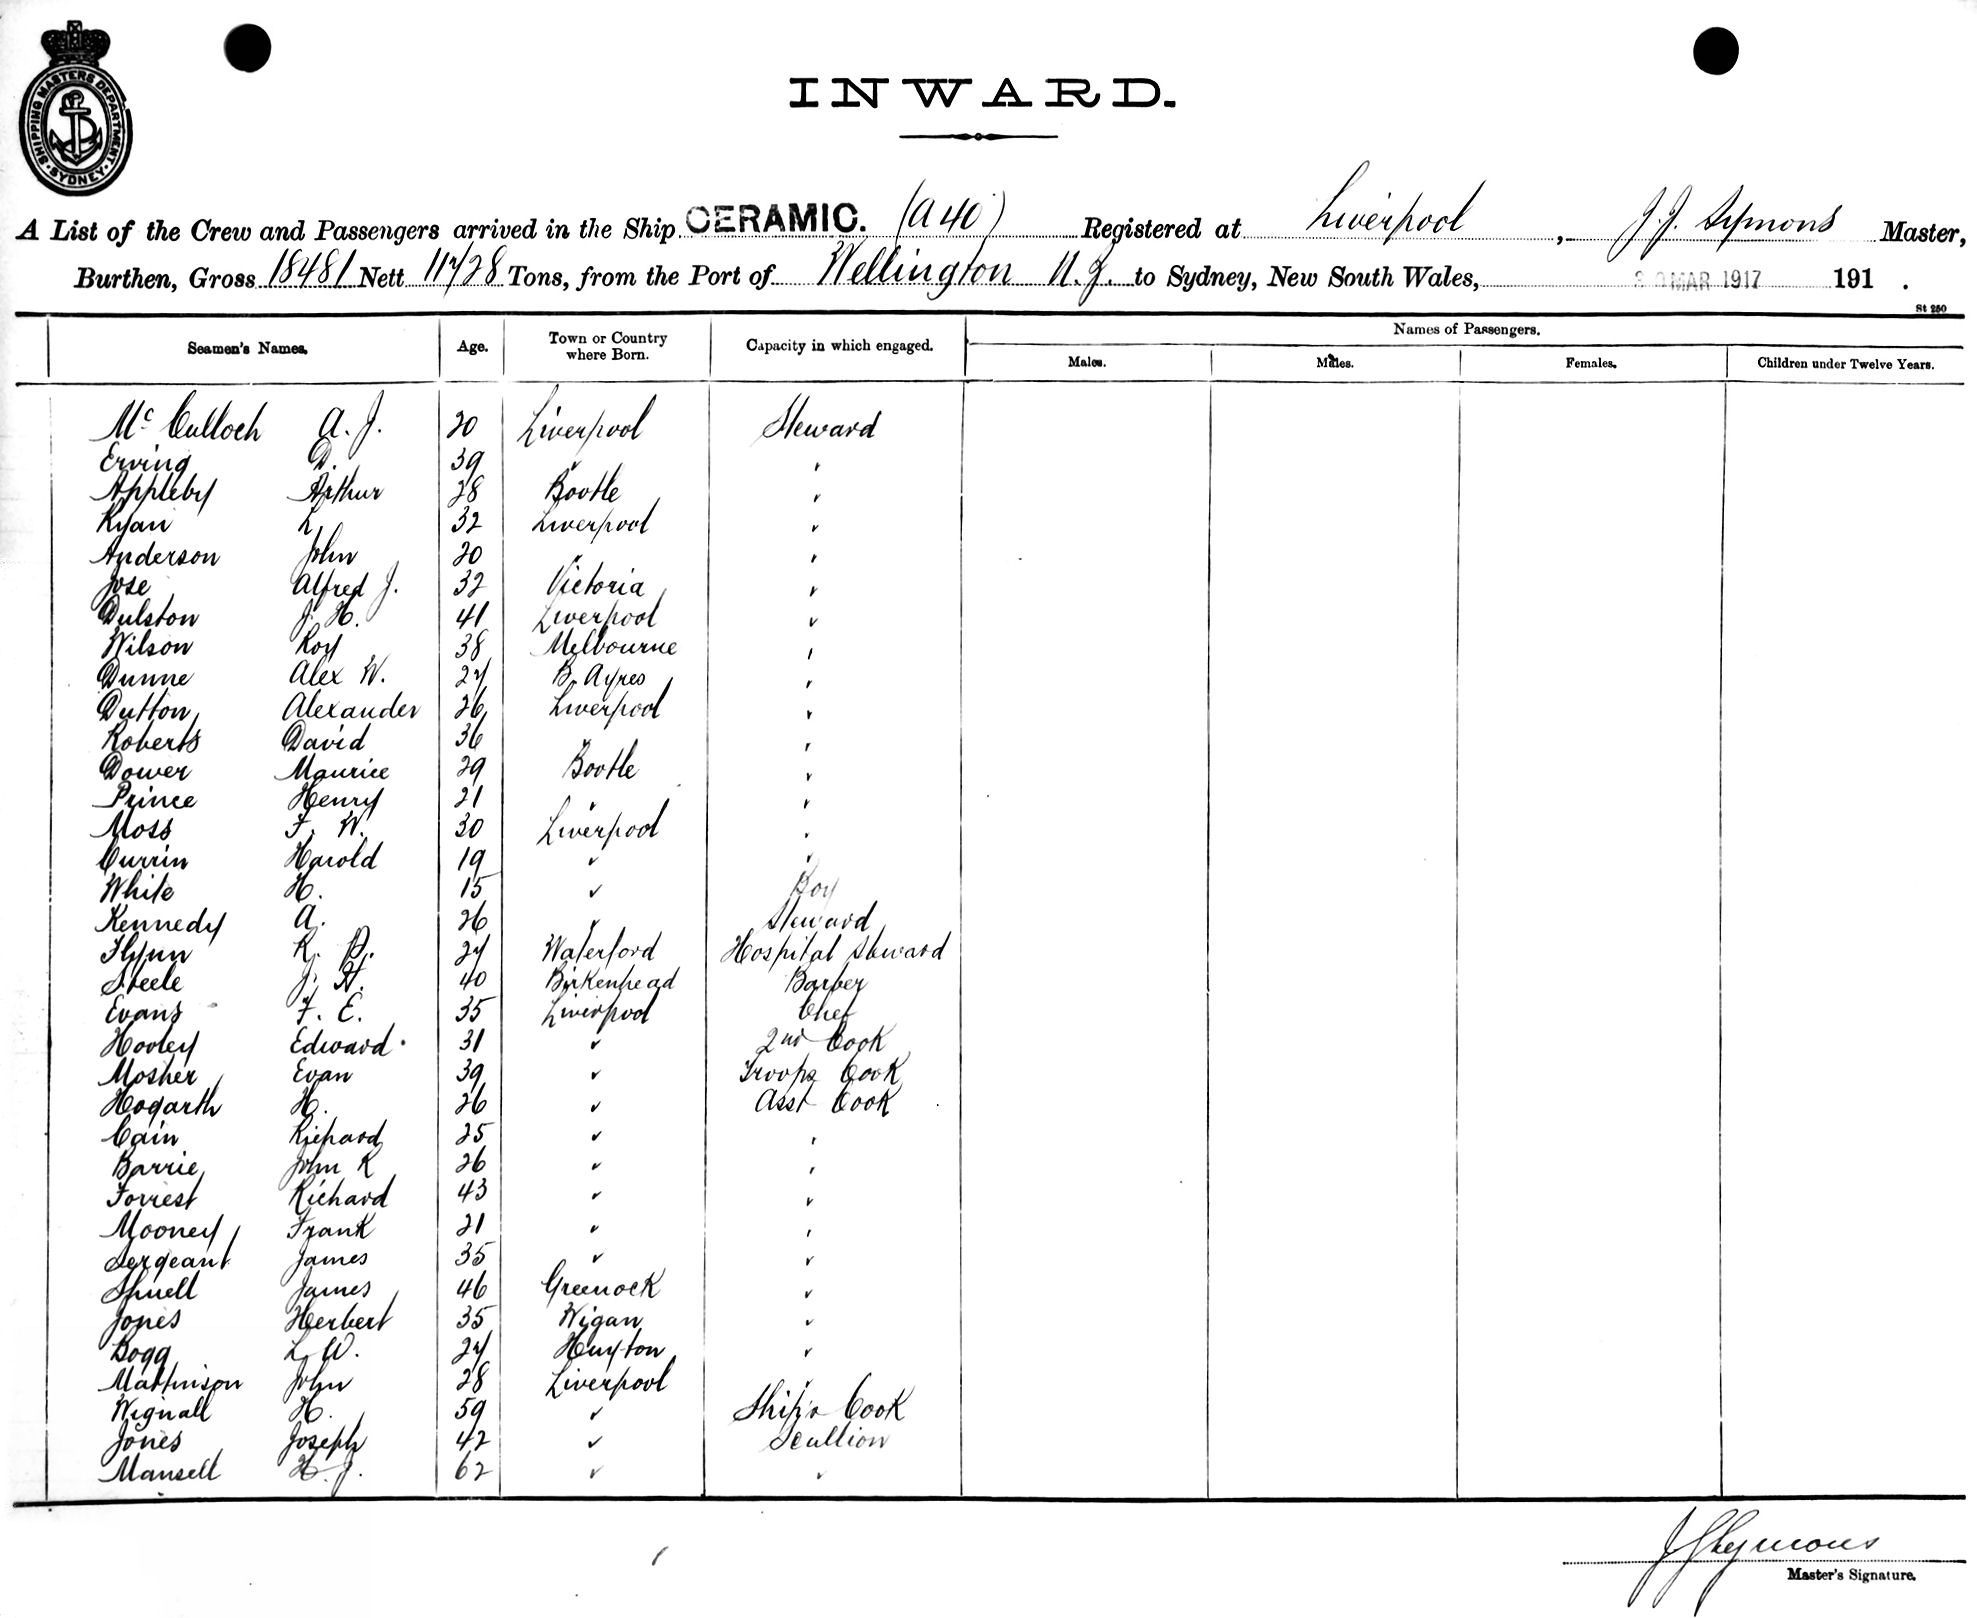 SHIPPING MASTERS DEPARTMENT
SYDNEY
INWARD.
A List of the Crew and Passengers arrived in the Ship CERAMIC. (A40) Registered at Liverpool, J. J. Symons Master,
Burthen, Gross 18481 Nett 11728 Tons, from the Port of Wellington N.Z. to Sydney, New South Wales, MAR 1917 191 .
St 250
Names of Passengers.
Seamen's Names. Age. Town or Country where Born. Capacity in which engaged. Males. Males. Females. Children under Twelve Years.
Mc Culloch A. J. 20 Liverpool Steward
Erving D. 39 " "
Appleby Arthur 28 Bootle "
Ryan L 32 Liverpool "
Anderson John 20 " "
Jose Alfred J. 32 Victoria "
Dulston J. H. 41 Liverpool "
Wilson Roy 38 Melbourne "
Dunne Alex W. 27 B. Ayres "
Dutton Alexander 26 Liverpool "
Roberts David 36 " "
Dower Maurice 29 Bootle "
Prince Henry 21 " "
Moss F. W. 30 Liverpool "
Currin Harold 19 " "
White H. 15 " Boy
Kennedy A. 26 " Steward
Flynn R. P. 27 Waterford Hospital Steward
Steele J. H. 40 Birkenhead Barber
Evans F. E. 35 Liverpool Chef
Hooley Edward 31 " 2nd Cook
Mosher Evan 39 " Troops Cook
Hogarth H. 26 " Asst Cook
Cain Richard 25 " "
Barrie John K 26 " "
Forrest Richard 43 " "
Mooney Frank 21 " "
Sergeant James 35 " "
Shuell James 46 Greenock "
Jones Herbert 35 Wigan "
Bogg L. W. 27 Huyton "
Mattinson John 28 Liverpool "
Wignall H. 59 " Ship's Cook
Jones Joseph 42 " Scullion
Mansell H. J. 62 " "
J J Symons
Master's Signature.